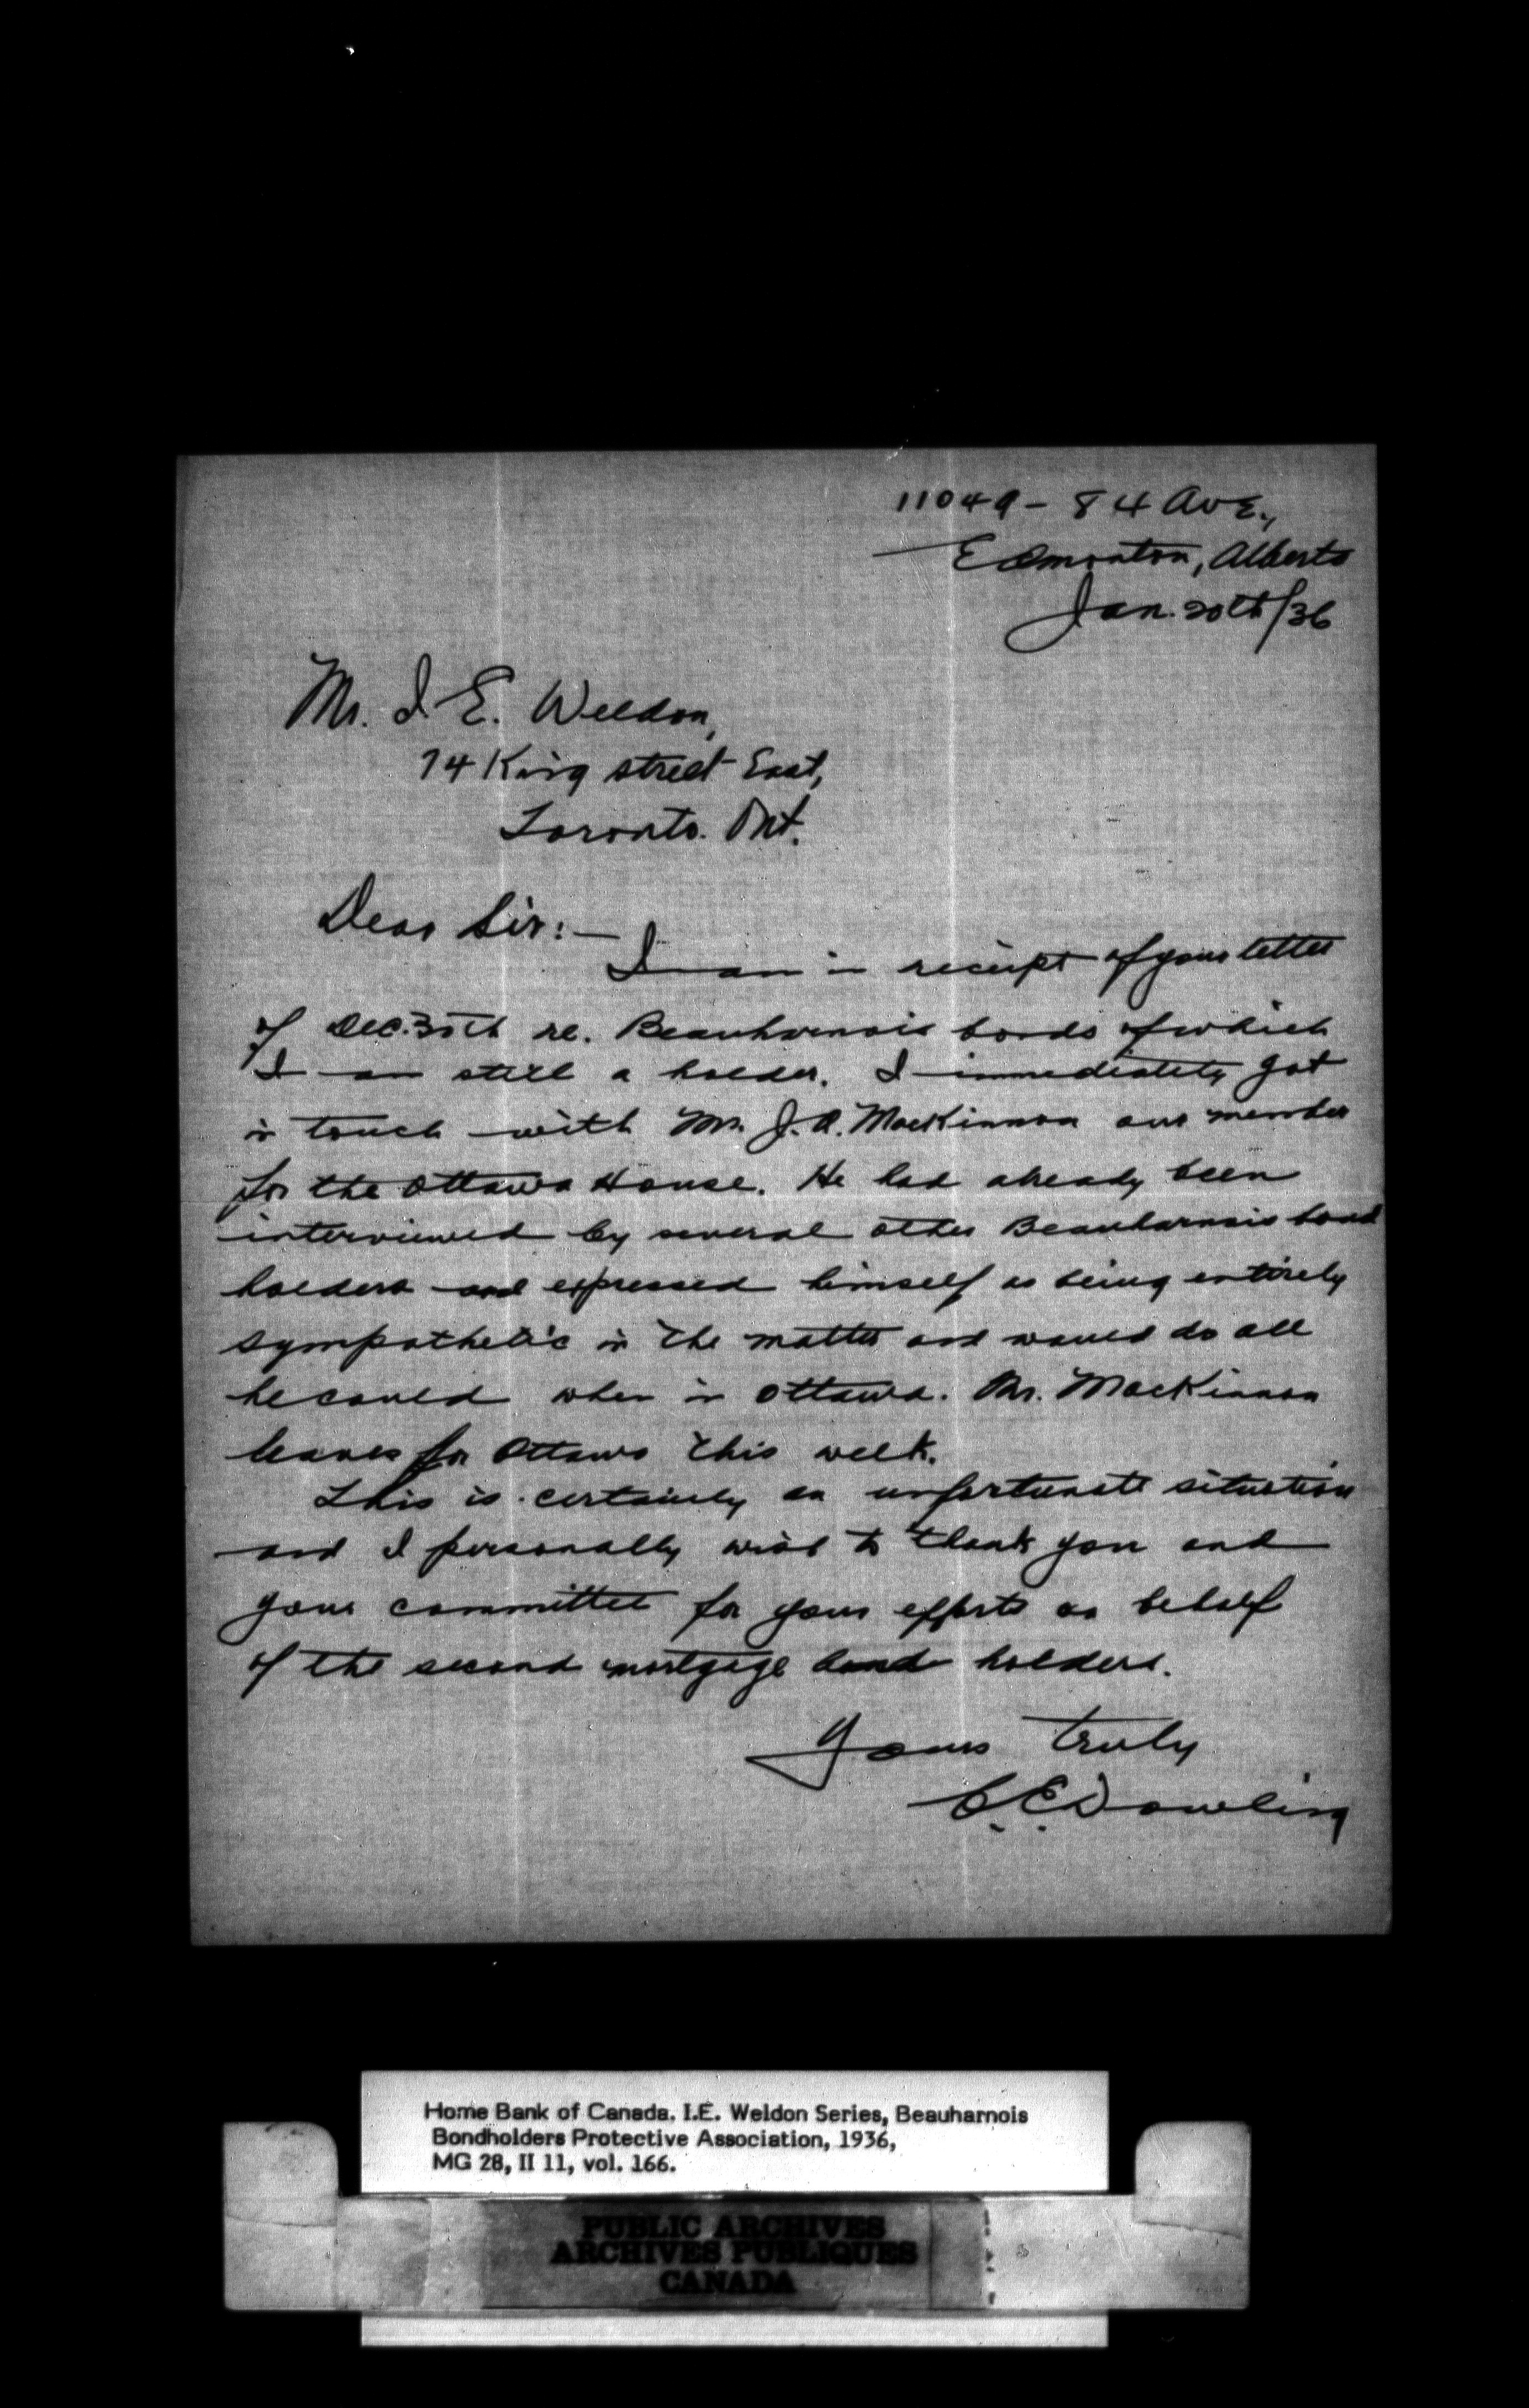 11049 - 84 Ave.,
Edmonton, Alberta
Jan. 20th/36
Mr. I. E. Weldon,
74 King street East,
Toronto. Ont.
Dear Sir: —
I am in receipt of your letter
of Dec. 30th re. Beauharnois bonds of which
I am still a holder. I immediately got
in touch with Mr. J. A. MacKinnon our member
for the Ottawa House. He had already been
interviewed by several other Beauharnois bond
holders and expressed himself as being entirely
sympathetic in the matter and would do all
he could when in Ottawa. Mr. MacKinnon
leaves for Ottawa this week.
This is certainly an unfortunate situation
and I personally wish to thank you and
your committee for your efforts on behalf
of the second mortgage bond holders.
Yours truly
C. E. Dowling
Home Bank of Canada. I.E. Weldon Series, Beauharnois
Bondholders Protective Association, 1936,
MG 28, II 11, vol. 166.
PUBLIC ARCHIVES
ARCHIVES PUBLIQUES
CANADA